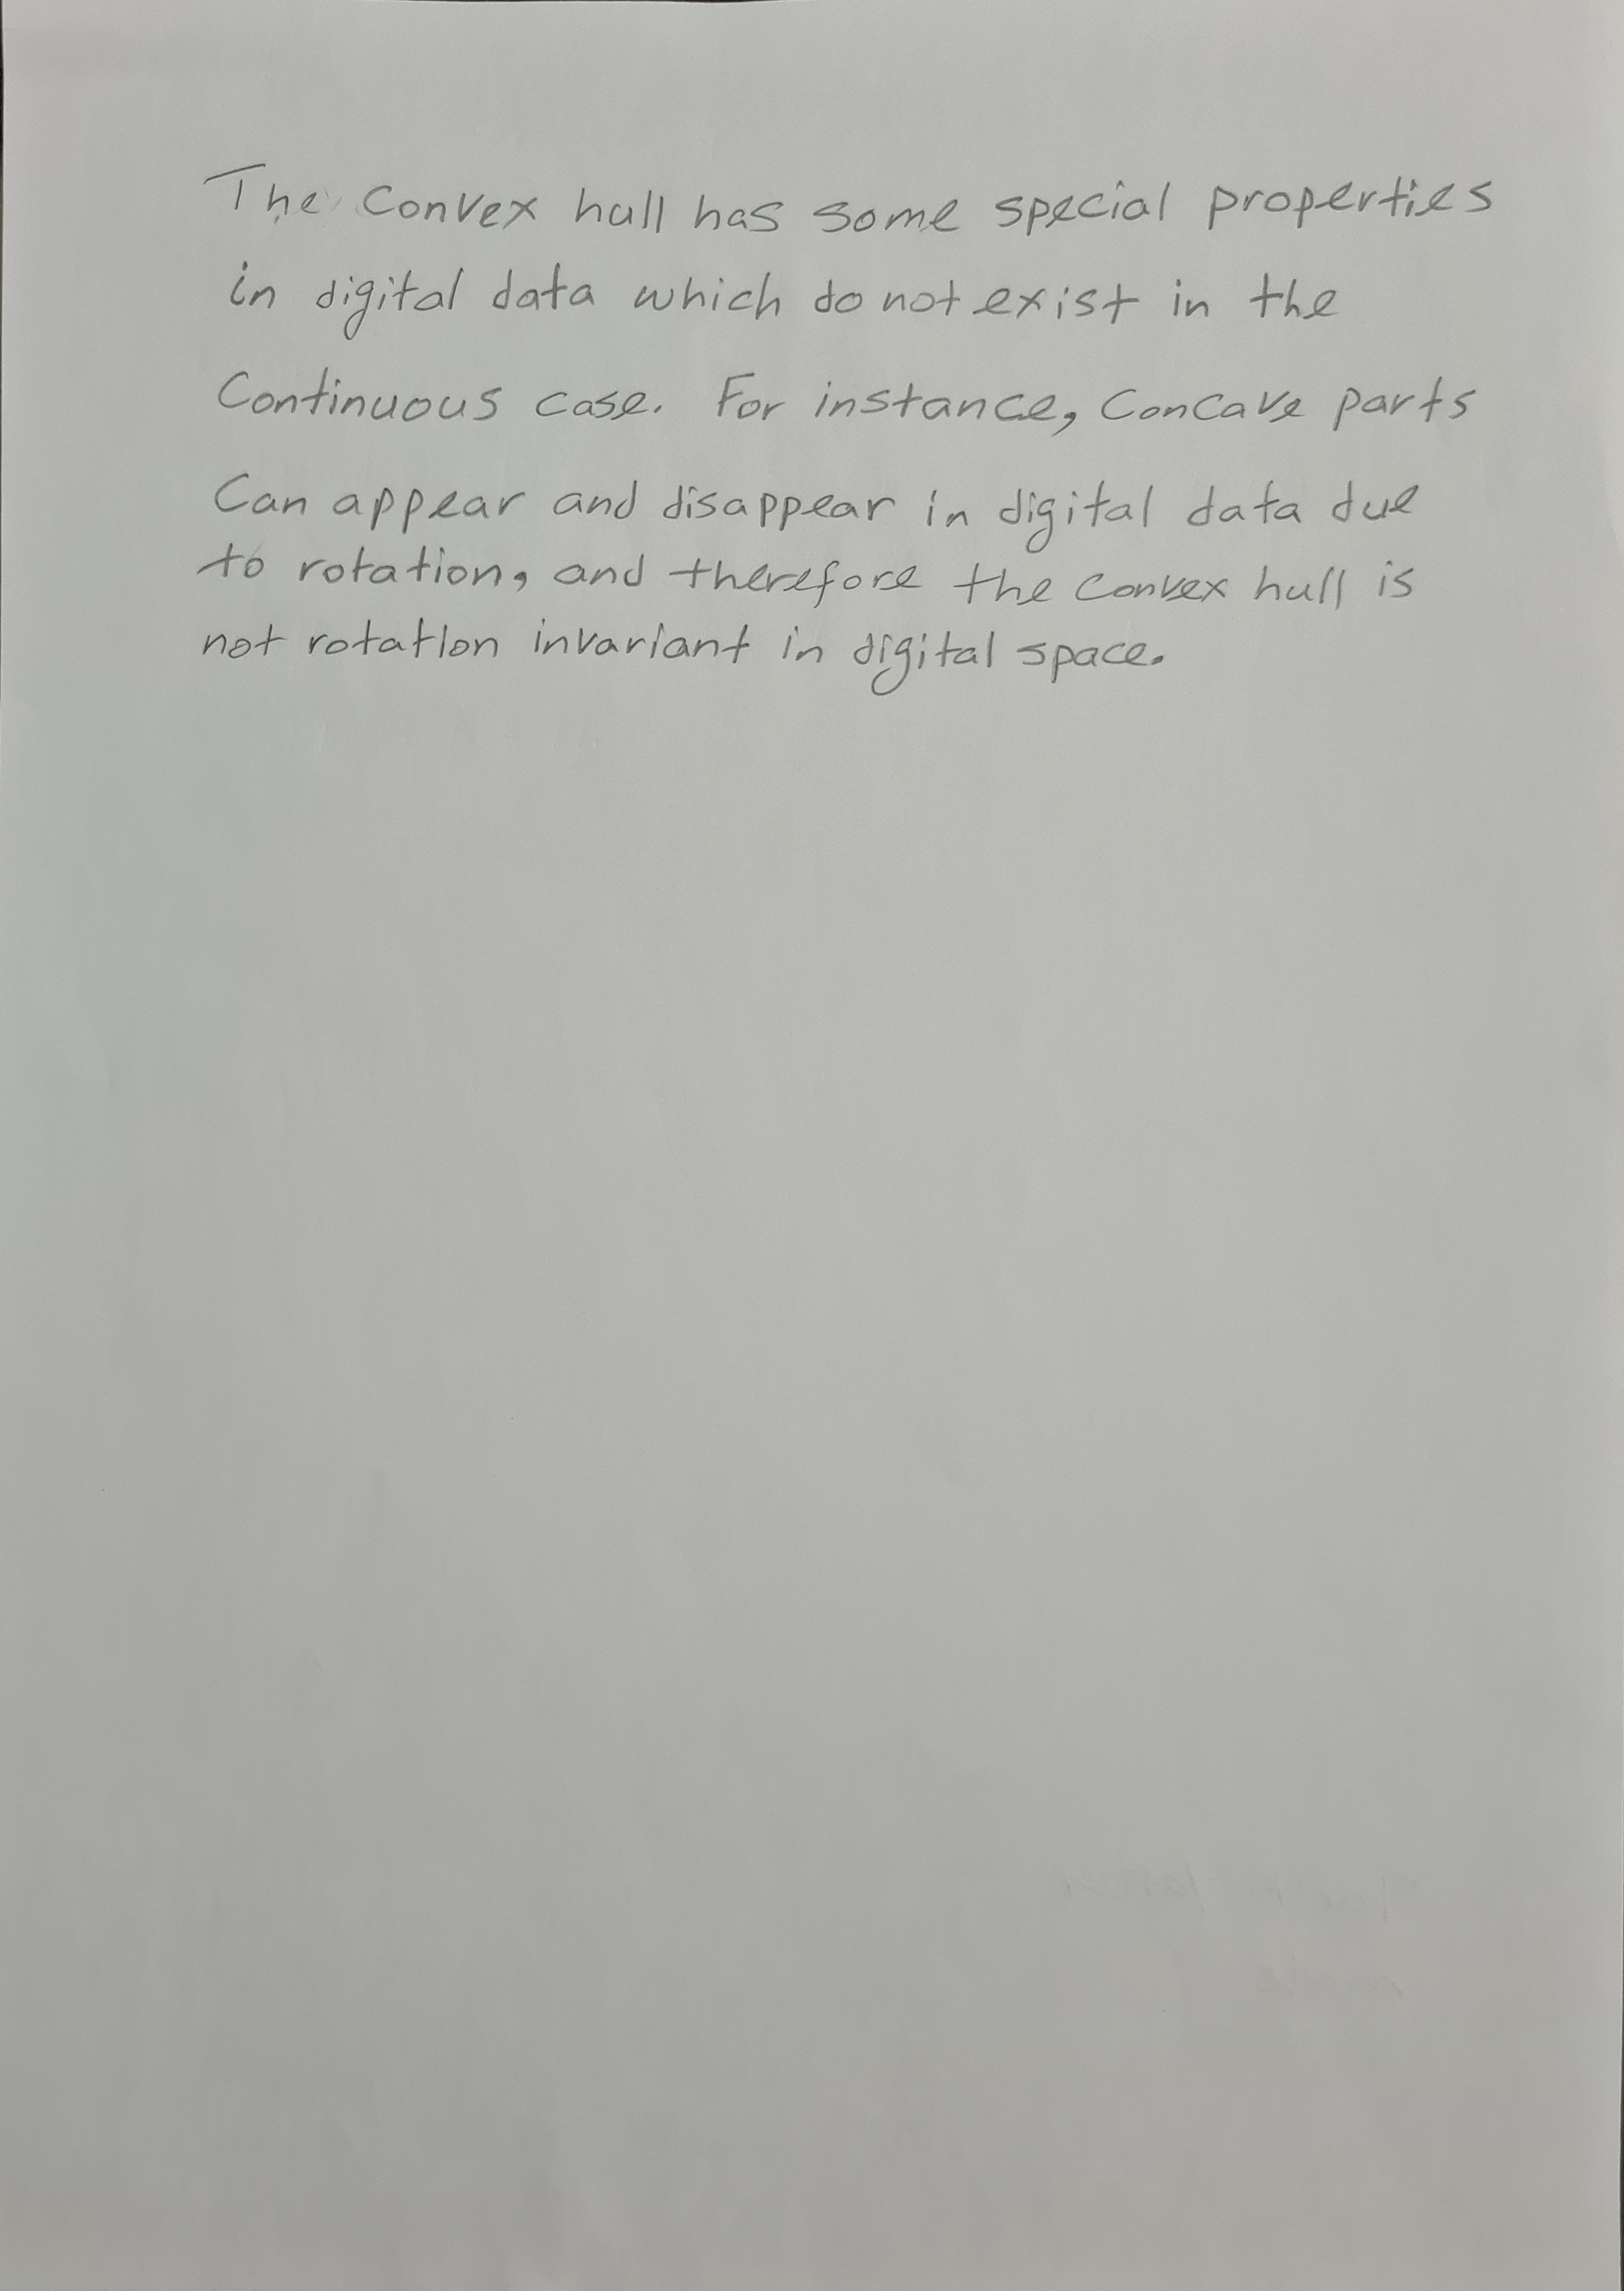 The convex hull has some special properties
in digital data which do not exist in the
Continuous case. For instance, Concave parts
Can appear and disappear in digital data due
to rotation, and therefore the convex hull is
not rotation invariant in digital space.